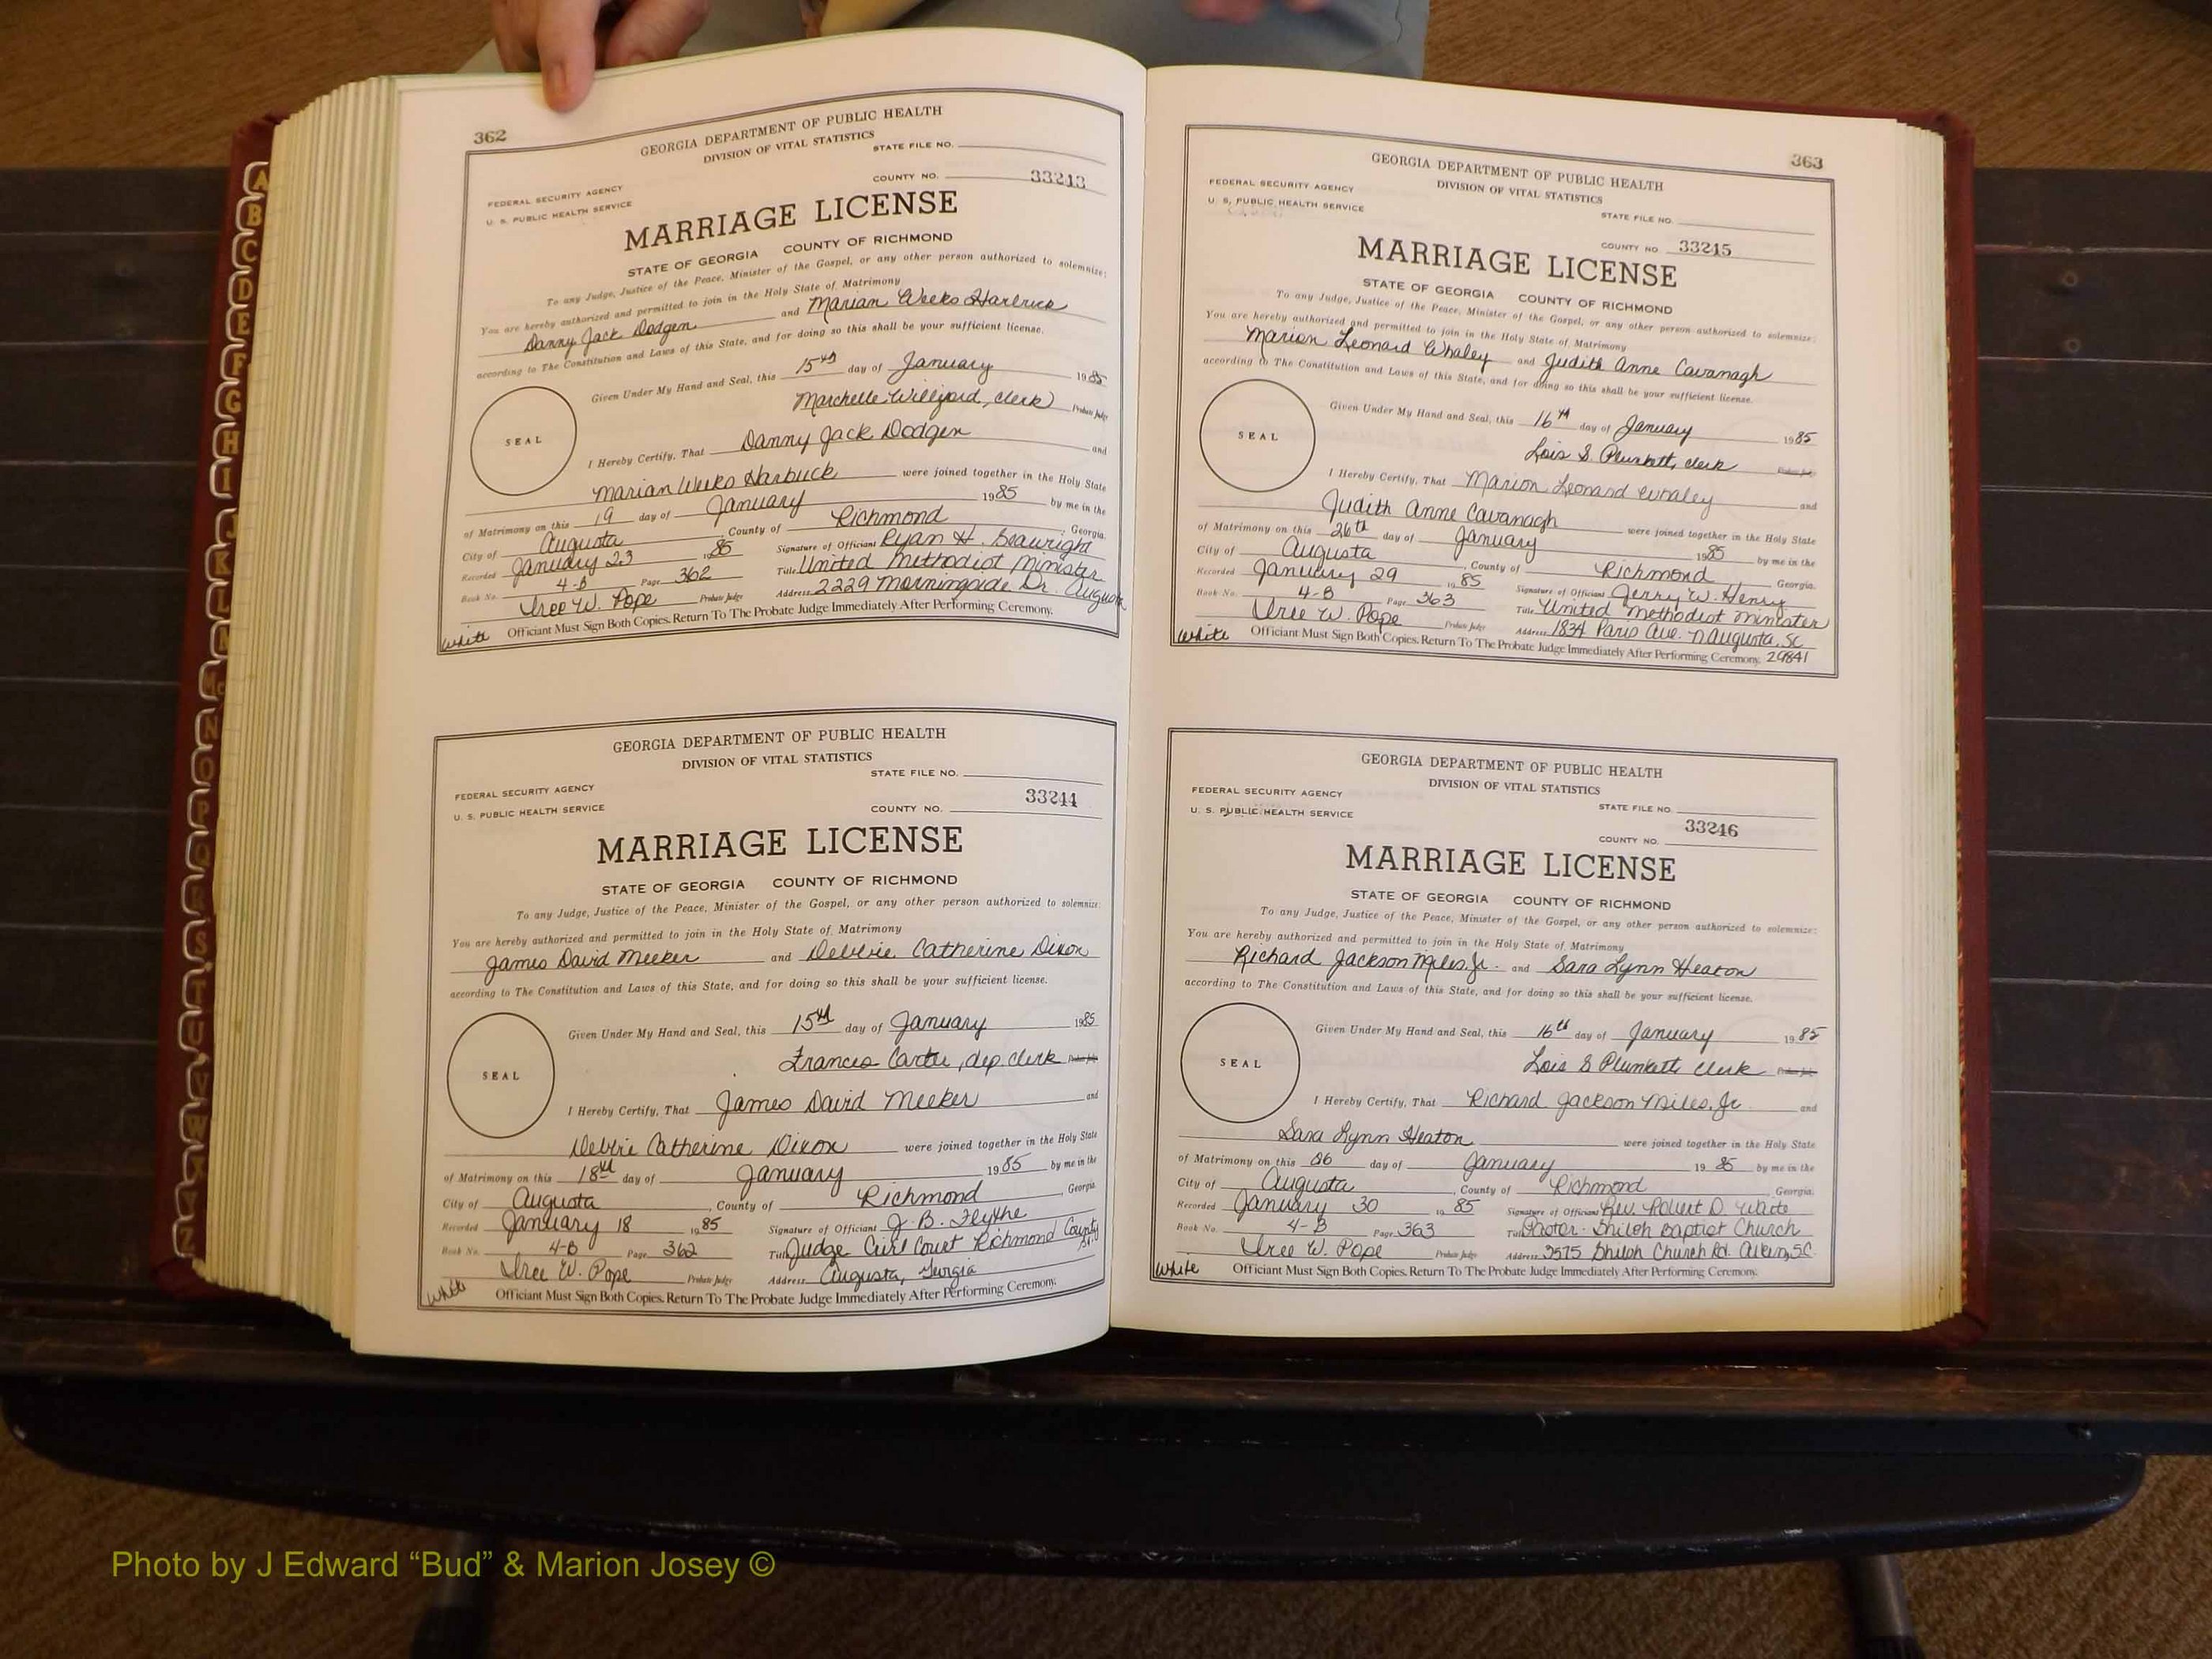 362
GEORGIA DEPARTMENT OF PUBLIC HEALTH
DIVISION OF VITAL STATISTICS
STATE FILE NO.
COUNTY NO. 33243
FEDERAL SECURITY AGENCY
U. S. PUBLIC HEALTH SERVICE
MARRIAGE LICENSE
STATE OF GEORGIA COUNTY OF RICHMOND
To any Judge, Justice of the Peace, Minister of the Gospel, or any other person authorized to solemnize:
You are hereby authorized and permitted to join in the Holy State of Matrimony
Danny Jack Dodgen and Marian Weeks Harbuck
according to The Constitution and Laws of this State, and for doing so this shall be your sufficient license.
Given Under My Hand and Seal, this 15th day of January 1985
SEAL
Marchelle Willyard, clerk Probate Judge
I Hereby Certify, That Danny Jack Dodgen and
Marian Weeks Harbuck were joined together in the Holy State
of Matrimony on this 19 day of January 1985 by me in the
City of Augusta, County of Richmond, Georgia.
Recorded January 23 1985 Signature of Officiant Ryan H. Seawright
Book No. 4-B Page 362 Title United Methodist Minister
Iree W. Pope Probate Judge Address 2229 Morningside Dr. Augusta
White Officiant Must Sign Both Copies. Return To The Probate Judge Immediately After Performing Ceremony.
GEORGIA DEPARTMENT OF PUBLIC HEALTH
DIVISION OF VITAL STATISTICS
STATE FILE NO.
FEDERAL SECURITY AGENCY
U. S. PUBLIC HEALTH SERVICE
COUNTY NO. 33244
MARRIAGE LICENSE
STATE OF GEORGIA COUNTY OF RICHMOND
To any Judge, Justice of the Peace, Minister of the Gospel, or any other person authorized to solemnize:
You are hereby authorized and permitted to join in the Holy State of Matrimony
James David Meeker and Debbie Catherine Dixon
according to The Constitution and Laws of this State, and for doing so this shall be your sufficient license.
Given Under My Hand and Seal, this 15th day of January 1985
SEAL
Frances Carter, dep. clerk Probate Judge
I Hereby Certify, That James David Meeker and
Debbie Catherine Dixon were joined together in the Holy State
of Matrimony on this 18th day of January 1985 by me in the
City of Augusta, County of Richmond, Georgia
Recorded January 18 1985 Signature of Officiant J. B. Flythe
Book No. 4-B Page 362 Title Judge Civil Court Richmond County
Iree W. Pope Probate Judge Address Augusta, Georgia
White Officiant Must Sign Both Copies. Return To The Probate Judge Immediately After Performing Ceremony.
363
GEORGIA DEPARTMENT OF PUBLIC HEALTH
DIVISION OF VITAL STATISTICS
FEDERAL SECURITY AGENCY
U. S. PUBLIC HEALTH SERVICE
STATE FILE NO.
COUNTY NO. 33245
MARRIAGE LICENSE
STATE OF GEORGIA COUNTY OF RICHMOND
To any Judge, Justice of the Peace, Minister of the Gospel, or any other person authorized to solemnize:
You are hereby authorized and permitted to join in the Holy State of Matrimony
Marion Leonard Whaley and Judith Anne Cavanagh
according to The Constitution and Laws of this State, and for doing so this shall be your sufficient license.
Given Under My Hand and Seal, this 16th day of January 1985
SEAL
Lois S. Plunkett, clerk Probate Judge
I Hereby Certify, That Marion Leonard Whaley and
Judith Anne Cavanagh were joined together in the Holy State
of Matrimony on this 26th day of January 1985 by me in the
City of Augusta, County of Richmond Georgia.
Recorded January 29 1985 Signature of Officiant Jerry W. Henry
Book No. 4-B Page 363 Title United Methodist Minister
Iree W. Pope Probate Judge Address 1834 Paris Ave. N Augusta, SC
White Officiant Must Sign Both Copies. Return To The Probate Judge Immediately After Performing Ceremony. 29841
GEORGIA DEPARTMENT OF PUBLIC HEALTH
DIVISION OF VITAL STATISTICS
FEDERAL SECURITY AGENCY
U. S. PUBLIC HEALTH SERVICE
STATE FILE NO.
COUNTY NO. 33246
MARRIAGE LICENSE
STATE OF GEORGIA COUNTY OF RICHMOND
To any Judge, Justice of the Peace, Minister of the Gospel, or any other person authorized to solemnize:
You are hereby authorized and permitted to join in the Holy State of Matrimony
Richard Jackson Miles, Jr. and Sara Lynn Heaton
according to The Constitution and Laws of this State, and for doing so this shall be your sufficient license.
Given Under My Hand and Seal, this 16th day of January 1985
SEAL
Lois S Plunkett, clerk Probate Judge
I Hereby Certify, That Richard Jackson Miles, Jr. and
Sara Lynn Heaton were joined together in the Holy State
of Matrimony on this 26 day of January 1985 by me in the
City of Augusta, County of Richmond, Georgia.
Recorded January 30 1985 Signature of Officiant Rev. Robert D. Waite
Book No. 4-B Page 363 Title Pastor - Shiloh Baptist Church
Iree W. Pope Probate Judge Address 3575 Shiloh Church Rd. Aiken, SC
White Officiant Must Sign Both Copies. Return To The Probate Judge Immediately After Performing Ceremony.
A
B
C
D
E
F
G
H
I
J
K
L
M
Mc
N
O
P
Q
R
S
T
U
V
W
Z
Photo by J Edward “Bud” & Marion Josey ©